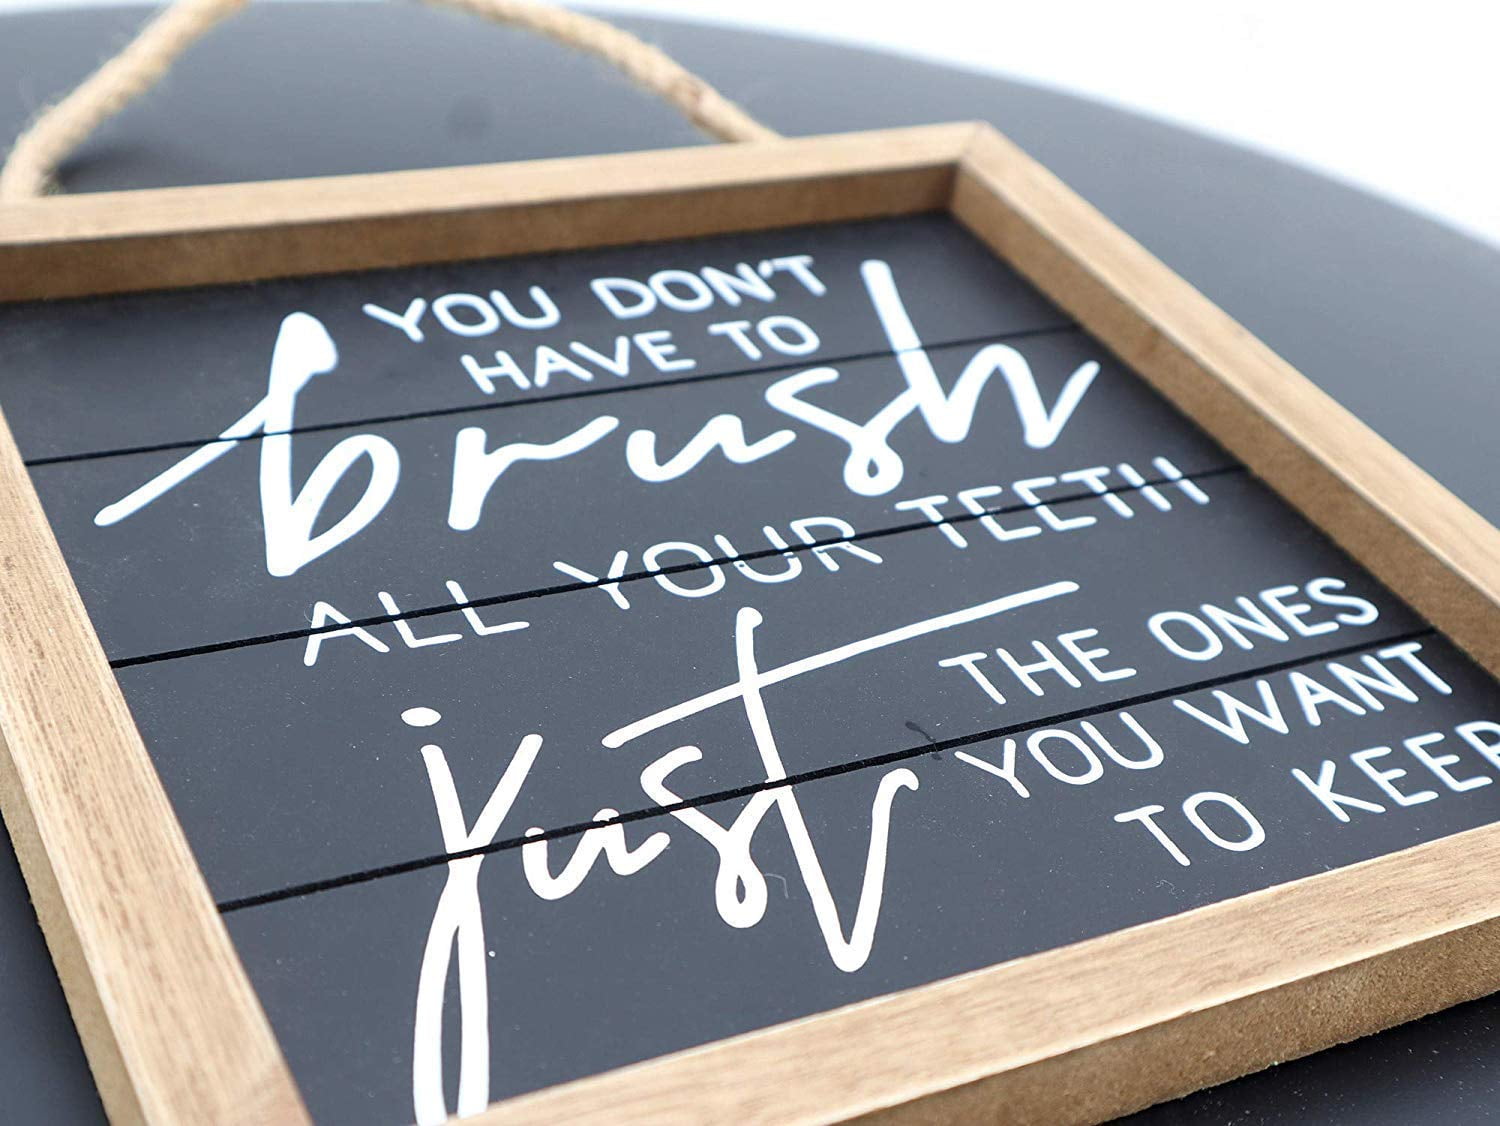 YOU DON'T
HAVE TO
brush
ALL YOUR TEETH
just
THE ONES
YOU WANT
TO KEEP